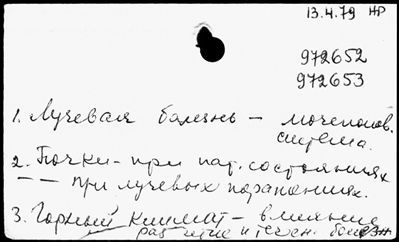 13.4.79 НР
972652
972653
1. Лучевая болезнь — мочеполов.
система.
2. Почки — при пат. состояниях
— — при лучевых поражениях.
3. Горный климат — влияние
развитие и течен. болезн